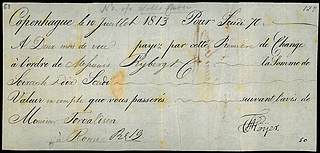 Copenhague le 10 juillet 1813 Pour Scudi 70
A Deux mois de vue payez par cette Première de Change
à l'ordre de Messieurs Ryberg & Co la Somme de
Soixante Dix Scudi
Valeur en compte que vous passerés suivant l'avis de
Monsieur Torvalsen
à Rome